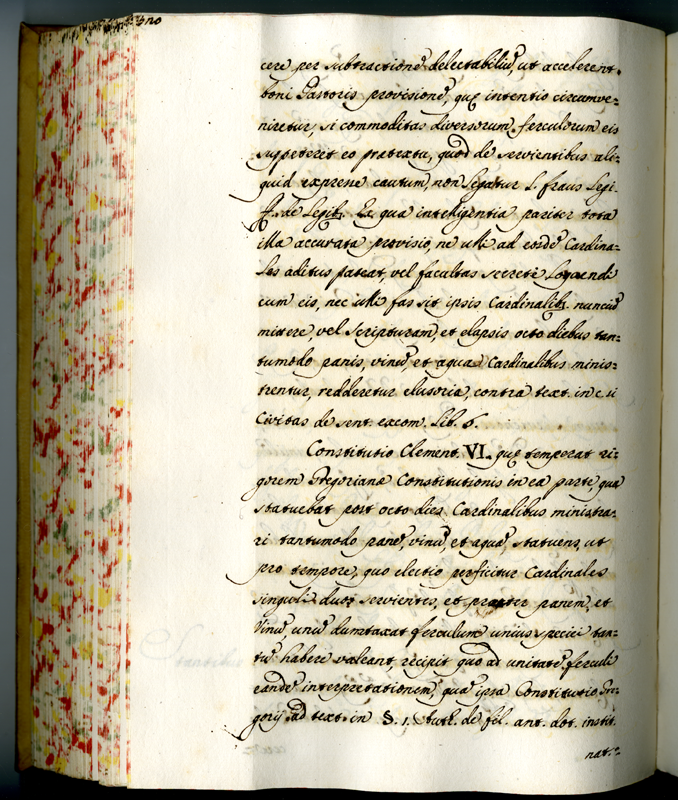 cere per subtractionẽ delectabiliũ, ut accelerent
boni Pastoris provisionẽ, quę intentio circumve=
niretur, si commoditas diversorum ferculorum eis
suppeterit eo pratextu, quod de servientibus ali=
quid expresse cautum, non legatur l. fraus legi
ff. de Legib. Ex qua intelligentia pariter tota
illa accurata provisio, ne ulli ad eosdẽ Cardina=
les aditus pateat, vel facultas secretè loquendi
cum eis, nec ulli fas sit ipsis Cardinalib. nunciũ
mittere, vel scripturam, et elapsis octo diebus tan=
tumodo panis, vinũ, et aqua Cardinalibus minis=
trentur, redderetur elusoria, contra text. in c. si
Civitas de sent. excom. lib. 6.
Constitutio Clement. VI. quę temperat ri=
gorem Gregorianæ Constitutionis in ea parte, qua
statuebat post octo dies Cardinalibus ministra=
ri tantumodo panẽ, vinũ, et aquã, statuens, ut
pro tempore, quo electio perficitur Cardinales
singuli duos servientes, et præter panem, et
vinũ, unũ dumtaxat ferculum unius speciei tan=
tũ habere valeant, recipit quo ad unitatẽ ferculi
eandẽ interpretationem, quã ipsa Constitutio Gre=
gorij ad text. in §. 1. Auth. de fil. ant. dot. instit.
nat.